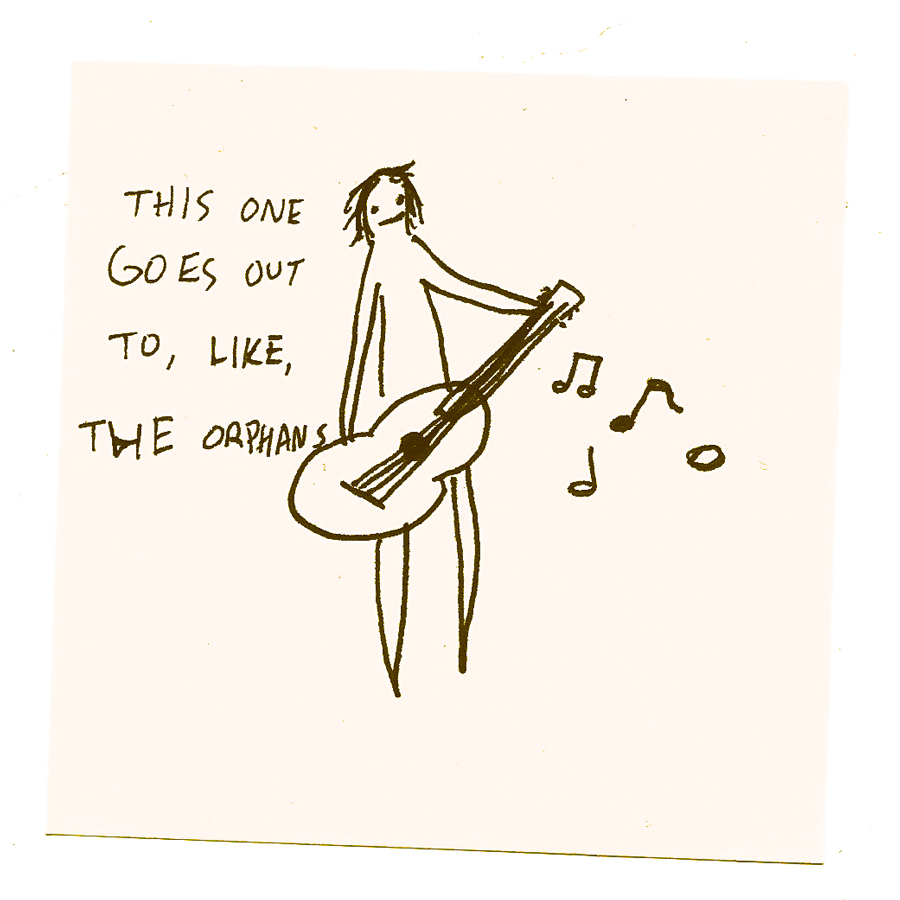 THIS ONE
GOES OUT
TO, LIKE,
THE ORPHANS